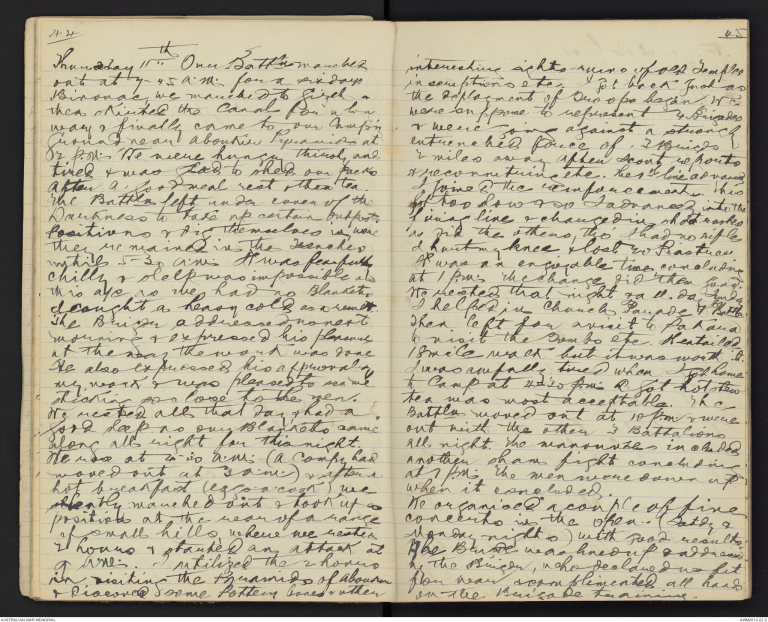 44
Thursday 11th Our Battln marched
out at 7-45 a.m. for a six days
Bivouac, we marched to Gizeh
then skirted the Canal for a long
way & finally came to our Camp'g
Ground near Abousir Pyramids at
p.m. We were hungry thirsty and
tired & was glad to shed our packs
After a good meal rest & then tea.
The Battln left under cover of the
Darkness to take up certain outpost
Positions & dig themselves in, where
they remained in the trenches
until 5-30 a.m. It was fearfully
chilly & sleep was impossible
this age as we had no Blankets
& caught a heavy cold as a result.
The Brigdr addressed us next
morning & expressed his pleasure
at the way the work was done
He also expressed his approval of
my work & was pleased to see me
sticking so close to the men.
We rested all that day & had a
good sleep as our Blankets came
along all right for this night.
We rose at 4-30 a.m. (A Compy had
moved out at 3 a.m.) & after a
hot breakfast (eggs & cocoa) we
silently marched out & took up a
position at the rear of a range
of small hills where we rested
2 hours & started an attack at
9 a.m. I utilized the 2 hours
in visiting the Pyramids of Abousir
& Discovered some Pottery bones & other
45
interesting sights - ruins of old Temples
inscriptions etc. I got back just as
the deployment of Troops began, we
were suppose to represent 4 Brigades
& were going against a strongly
entrenched force of 2 Brigds
2 miles away. After scout reports
& reconnoitring etc. her line advanced
I joined the reinforcements. This
too slow & so I advanced into the
firing line & charged in short rushes
as did the others, tho I had no rifle
& hurt my knee & lost 20 Piastres.
It was an enjoyable time concluding
at 1 p.m. the change did them good.
We rested that night & all day Sunday
I helped in Church Parade 4 Battln
then left for a visit to Sakara
& visit the Tombs etc. It entailed
18 mile walk but it was worth it
I was awfully tired when I got home
to Camp at 4-30 p.m. & got hot stew
tea was most acceptable. The
Battln moved out at 10 p.m. & were
out with the other 3 Battalions
all night. The manouvres included
another sham fight concluding
at 7 p.m. The men were done up
when it concluded.
We organised a couple of fine
concerts in the open. (Satdy &
Monday nights) with good results.
The Brigde was lined up & addressed
by the Brigdr, who declared us fit
for war & complimented all hands
on the Brigade training.
AUSTRALIAN WAR MEMORIAL